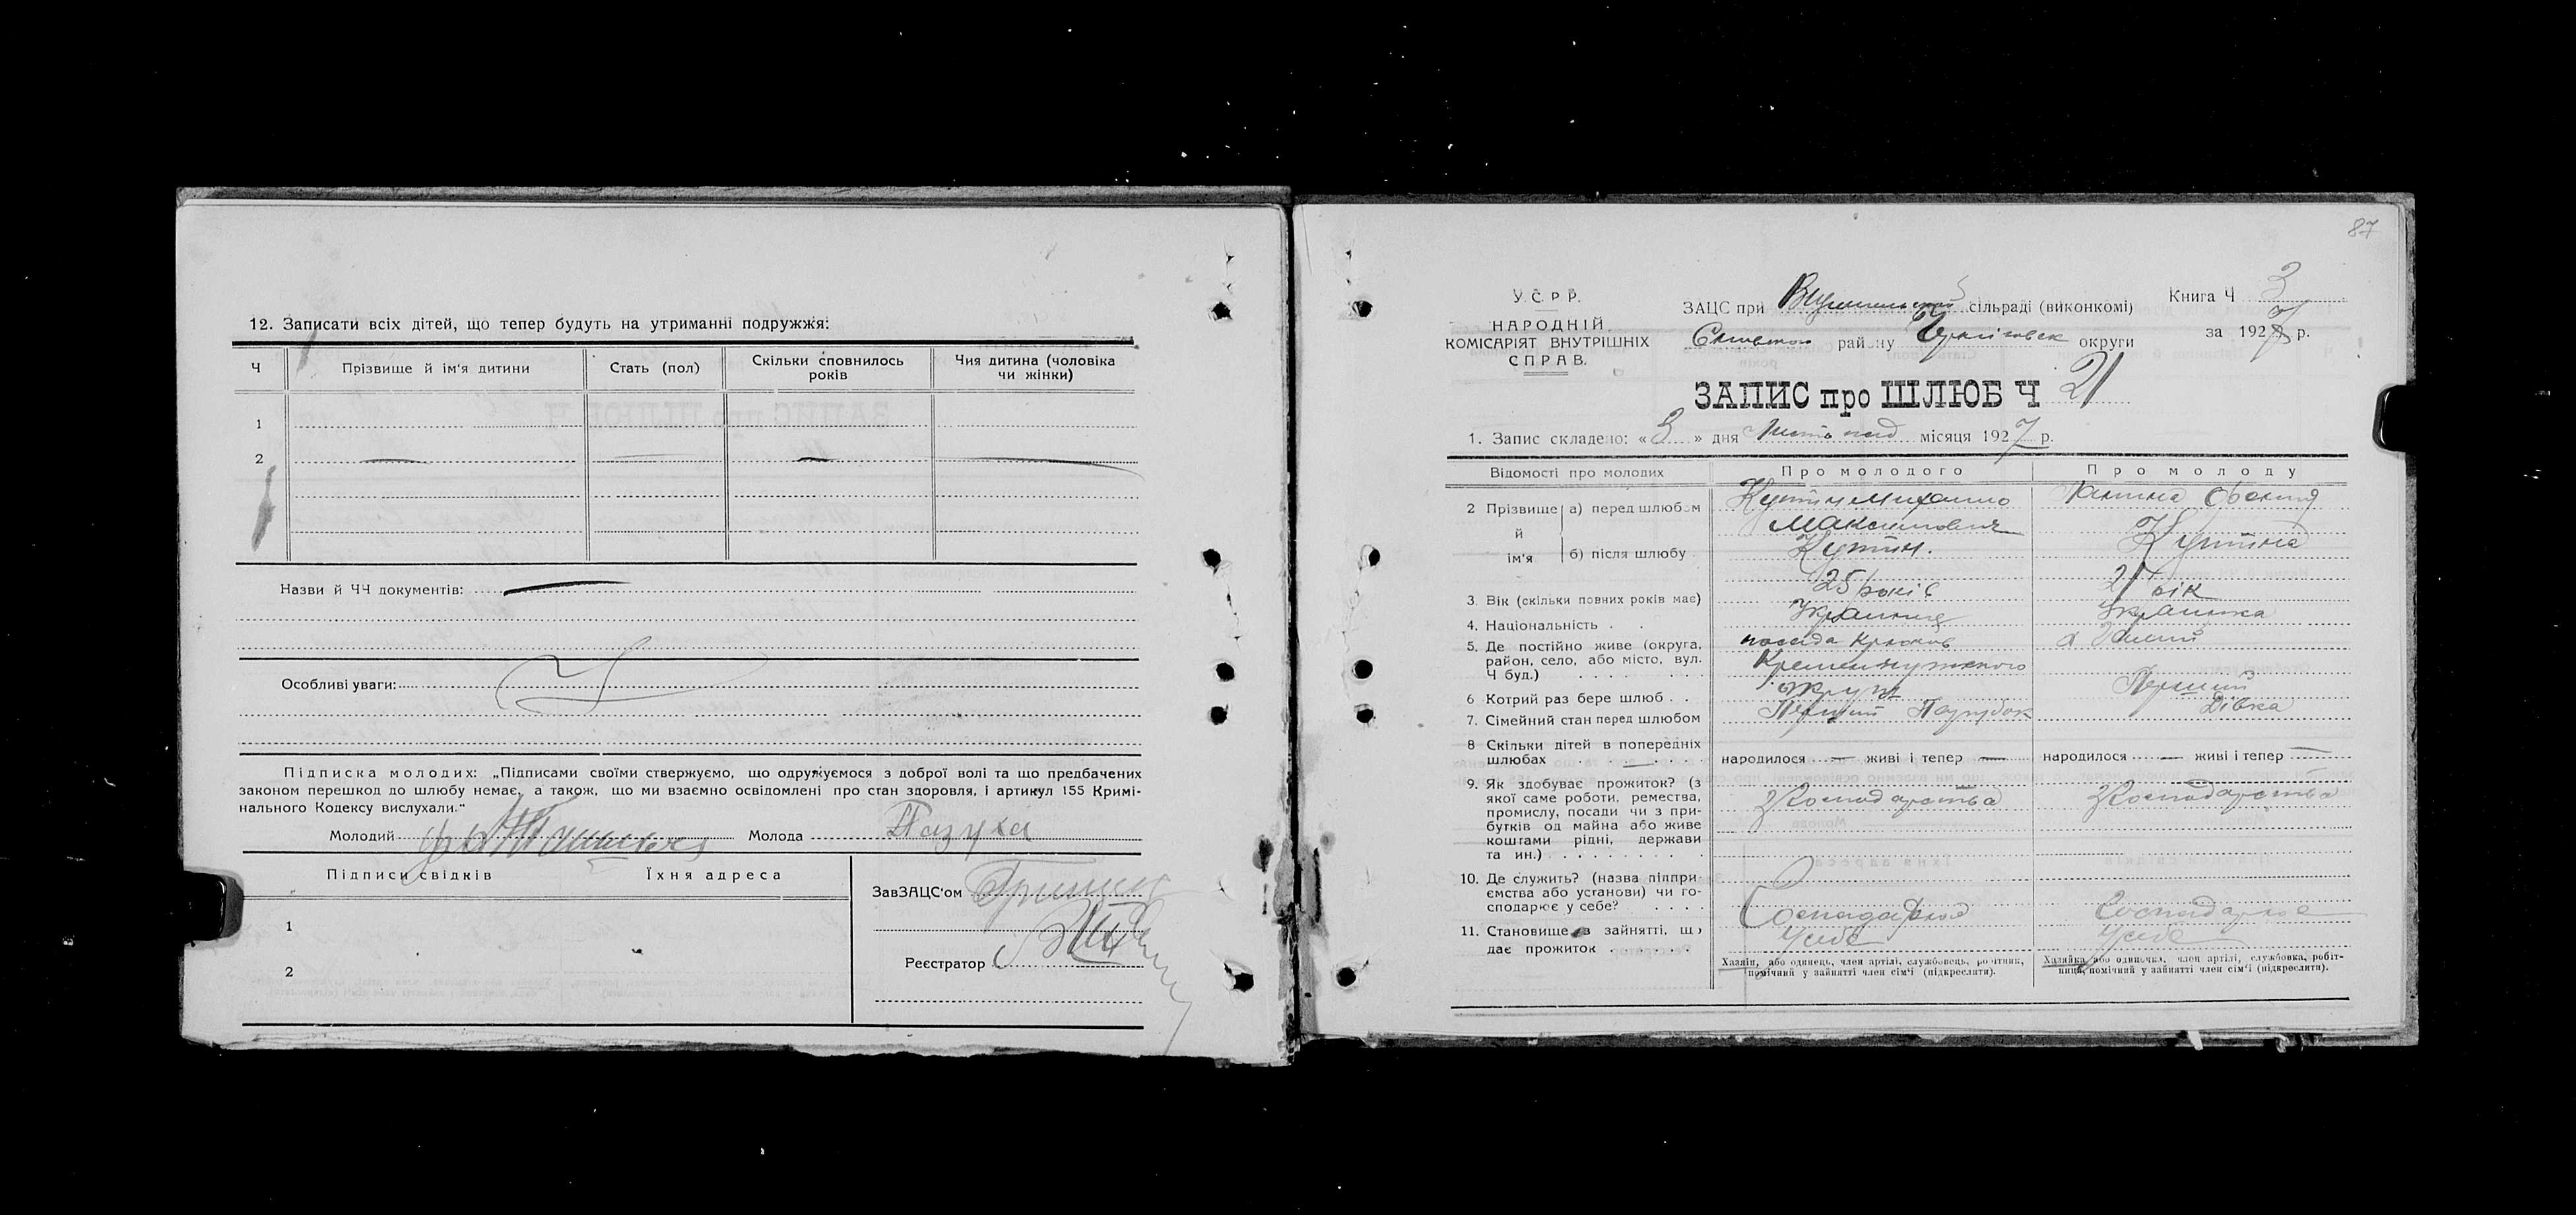 12. Записати всіх дітей, що тепер будуть на утриманні подружжя:
Ч
Прізвище й ім'я дитини
Стать (пол)
Скільки сповнилось
років
Чия дитина (чоловіка
чи жінки)
1
2
Назви й ЧЧ документів:
Особливі уваги:
Підписка молодих: „Підписами своїми стверджуємо, що одружуємося з доброї волі та що предбачених
законом перешкод до шлюбу немає, а також, що ми взаємно освідомлені про стан здоровля, і артикул 155 Кримі-
нального Кодексу вислухали."
Молодий
Молода Пазуха
Підписи свідків
Їхня адреса
1
2
ЗавЗАЦС'ом
Реєстратор
87
У.С.Р.Р.
НАРОДНІЙ
КОМІСАРІЯТ ВНУТРІШНІХ
СПРАВ.
ЗАЦС при сільраді (виконкомі)
району Черніговськ округи
Книга Ч 3
за 1927 р.
ЗАПИС про ШЛЮБ Ч 21
1. Запис складено: «3» дня Листопад місяця 1927 р.
Відомості про молодих
Про молодого
Про молоду
2 Прізвище й ім'я
а) перед шлюбом
Кутін Михаило
Максимович
б) після шлюбу
Кутін.
Кутіна
3. Вік (скільки повних років має)
25 років
21 рік
4. Національність
Українець
Українка
5. Де постійно живе (округа,
район, село, або місто, вул.
Ч буд.)
посада Крюков
Кременчужского
округи
6 Котрий раз бере шлюб
Перший
Перший
7. Сімейний стан перед шлюбом
Парубок
Дівка
8 Скільки дітей в попередніх
шлюбах
народилося — живі і тепер —
народилося — живі і тепер —
9. Як здобуває прожиток? (з
якої саме роботи, ремества,
промислу, посади чи з при-
бутків од майна або живе
коштами рідні, держави
та ин.)
З Господарства
З Господарства
10. Де служить? (назва підпри-
ємства або установи) чи го-
сподарює у себе?
Господарює
У себе
Господарює
У себе
11. Становище в зайнятті, що
дає прожиток
Хазяїн, або одинець, член артілі, службовець, робітник,
помічний у зайнятті член сім'ї (підкреслити).
Хазяйка або одиначка, член артілі, службовка, робіт-
ниця, помічний у зайнятті член сім'ї (підкреслити).